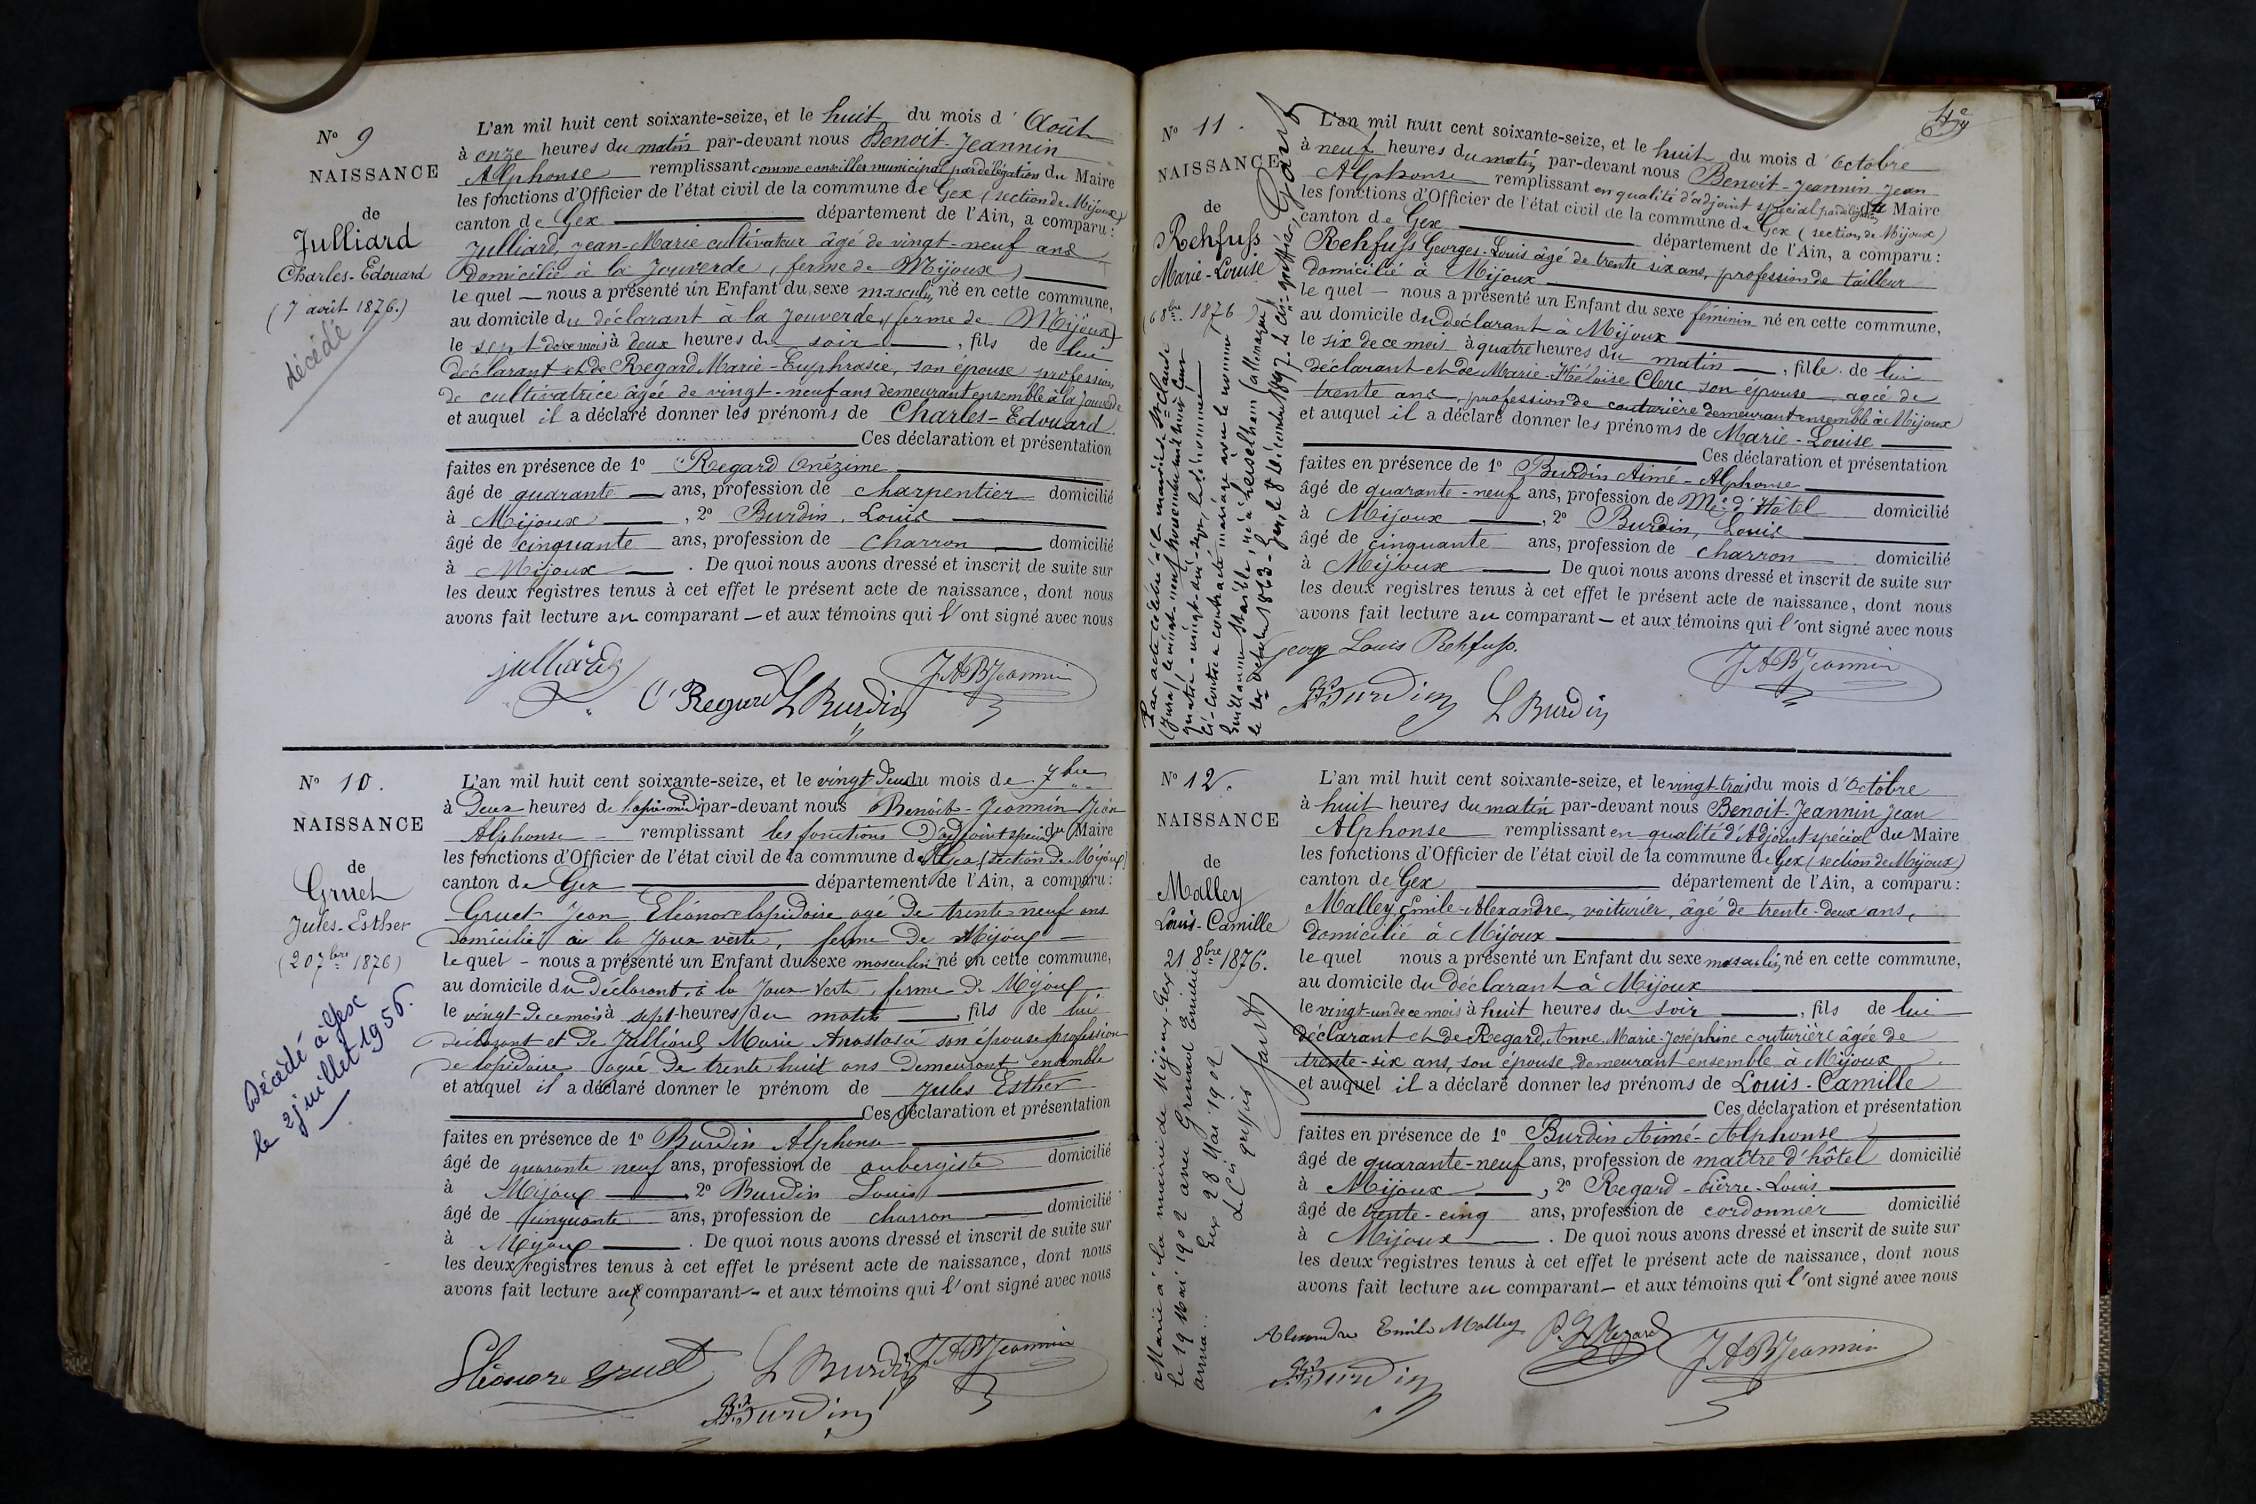 N° 9
NAISSANCE
de
Julliard
Charles-Edouard
(7 août 1876.)
décédé
L'an mil huit cent soixante-seize, et le huit du mois d'Août
à onze heures du matin par-devant nous Benoit-Jeannin
Alphonse remplissant comme conseiller municipal par délégation du Maire
les fonctions d'Officier de l'état civil de la commune de Gex (section de Mijoux)
canton de Gex département de l'Ain, a comparu:
Julliard, Jean-Marie cultivateur âgé de vingt-neuf ans
Domicilié à la Jouverde, (ferme de Mijoux)
le quel — nous a présenté un Enfant du sexe masculin, né en cette commune,
au domicile du déclarant à la Jouverde, (ferme de Mijoux)
le sept de ce mois à deux heures du soir, fils de lui
déclarant et de Regard Marie-Euphrasie, son épouse profession
de cultivatrice âgée de vingt-neuf ans demeurant ensemble à la Jouverde
et auquel il a déclaré donner les prénoms de Charles-Edouard.
Ces déclaration et présentation
faites en présence de 1° Regard Onézime
âgé de quarante ans, profession de charpentier domicilié
à Mijoux, 2° Burdin, Louis
âgé de cinquante ans, profession de charron domicilié
à Mijoux. De quoi nous avons dressé et inscrit de suite sur
les deux registres tenus à cet effet le présent acte de naissance, dont nous
avons fait lecture au comparant — et aux témoins qui l'ont signé avec nous
julliard
O Regard L Burdin
J A B Jeannin
N° 10.
NAISSANCE
de
Gruet
Jules-Esther
(20 7bre 1876)
Décédé à Gex
le 2 juillet 1956.
L'an mil huit cent soixante-seize, et le vingt Deux du mois de 7bre
à Deux heures de l'après midi par-devant nous Benoit-Jeannin Jean
Alphonse remplissant les fonctions D'adjoint spécial du Maire
les fonctions d'Officier de l'état civil de la commune de Gex (section de Mijoux)
canton de Gex département de l'Ain, a comparu:
Gruet Jean Eléonore lapidaire agé De trente neuf ans
Domicilié à la Joux verte, ferme De Mijoux
le quel – nous a présenté un Enfant du sexe masculin né en cette commune,
au domicile du Déclarant, à la Joux Verte, ferme De Mijoux
le vingt de ce mois à sept heures du matin, fils de lui
Déclarant et De Julliard Marie Anastasie son épouse profession
De lapidaire agée De trente huit ans Demeurant ensemble
et auquel il a déclaré donner le prénom de Jules Esther
Ces déclaration et présentation
faites en présence de 1° Burdin Alphonse
âgé de quarante neuf ans, profession de aubergiste domicilié
à Mijoux, 2° Burdin Louis
âgé de cinquante ans, profession de charron domicilié
à Mijoux. De quoi nous avons dressé et inscrit de suite sur
les deux registres tenus à cet effet le présent acte de naissance, dont nous
avons fait lecture aux comparant – et aux témoins qui l'ont signé avec nous
Eléonore gruet L Burdin J A B Jeannin
Burdin
N° 11.
NAISSANCE
de
Rehfuss
Marie-Louise
(6 8bre 1876)
Par acte célébré à la mairie de St Claude
(Jura) le vingt-neuf novembre mil huit cent
quatre-vingt-dix-sept, la dénommée
ci-contre a contracté mariage avec le nommé
Guillaume Staible, né à heiselheim (allemagne)
le 1er octobre 1863. Gex, le 8 décembre 1897. Le Cis-greffier,
L'an mil huit cent soixante-seize, et le huit du mois d'Octobre
à neuf heures du matin par-devant nous Benoit-Jeannin Jean
Alphonse remplissant en qualité d'adjoint spécial par délégation du Maire
les fonctions d'Officier de l'état civil de la commune de Gex (section de Mijoux)
canton de Gex département de l'Ain, a comparu:
Rehfuss Georges-Louis âgé de trente six ans, profession de tailleur
domicilié à Mijoux
le quel — nous a présenté un Enfant du sexe féminin né en cette commune,
au domicile du déclarant à Mijoux
le six de ce mois à quatre heures du matin, fille de lui
déclarant et de Marie-Héloise Clerc son épouse, agée de
trente ans, profession de couturière demeurant ensemble à Mijoux
et auquel il a déclaré donner les prénoms de Marie-Louise
Ces déclaration et présentation
faites en présence de 1° Burdin Aimé-Alphonse
âgé de quarante-neuf ans, profession de Me d'Hôtel domicilié
à Mijoux, 2° Burdin, Louis
âgé de cinquante ans, profession de charron domicilié
à Mijoux. De quoi nous avons dressé et inscrit de suite sur
les deux registres tenus à cet effet le présent acte de naissance, dont nous
avons fait lecture au comparant — et aux témoins qui l'ont signé avec nous
Georg Louis Rehfuss.
J A B Jeannin
Burdin L Burdin
N° 12.
NAISSANCE
de
Malley
Louis-Camille
21 8bre 1876.
Marié à la mairie de Mijoux-Gex
le 19 Mai 1902 avec Grenard Emilie
Gex 28 Mai 1902
Le Cis greffier
L'an mil huit cent soixante-seize, et le vingt-trois du mois d'Octobre
à huit heures du matin par-devant nous Benoit-Jeannin Jean
Alphonse remplissant en qualité d'Adjoint spécial du Maire
les fonctions d'Officier de l'état civil de la commune de Gex (section de Mijoux)
canton de Gex département de l'Ain, a comparu:
Malley Emile-Alexandre, voiturier, âgé de trente-deux ans,
domicilié à Mijoux
le quel nous a présenté un Enfant du sexe masculin, né en cette commune,
au domicile du déclarant à Mijoux
le vingt-un de ce mois à huit heures du soir, fils de lui
déclarant et de Regard, Anne-Marie-Joséphine couturière âgée de
trente-six ans, son épouse, demeurant ensemble à Mijoux
et auquel il a déclaré donner les prénoms de Louis-Camille
Ces déclaration et présentation
faites en présence de 1° Burdin Aimé-Alphonse
âgé de quarante-neuf ans, profession de maître d'hôtel domicilié
à Mijoux, 2° Regard-Pierre-Louis
âgé de trente-cinq ans, profession de cordonnier domicilié
à Mijoux. De quoi nous avons dressé et inscrit de suite sur
les deux registres tenus à cet effet le présent acte de naissance, dont nous
avons fait lecture au comparant — et aux témoins qui l'ont signé avec nous
Alexandre Emile Malley P. L. Regard
J A B Jeannin
Burdin